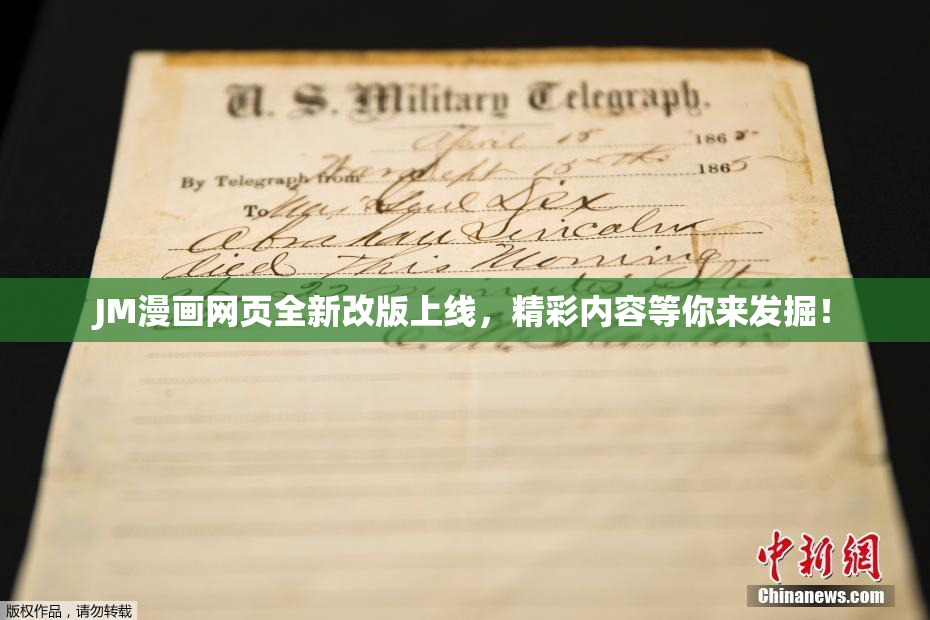 U. S. Military Telegraph.
April 15 1865.
By Telegraph from War Dept 15th 1865
To Maj Genl Dix
Abraham Lincoln
died This Morning
at 22 minutes after
JM漫画网页全新改版上线，精彩内容等你来发掘！
E. M. Stanton
中新网
Chinanews.com
版权作品，请勿转载